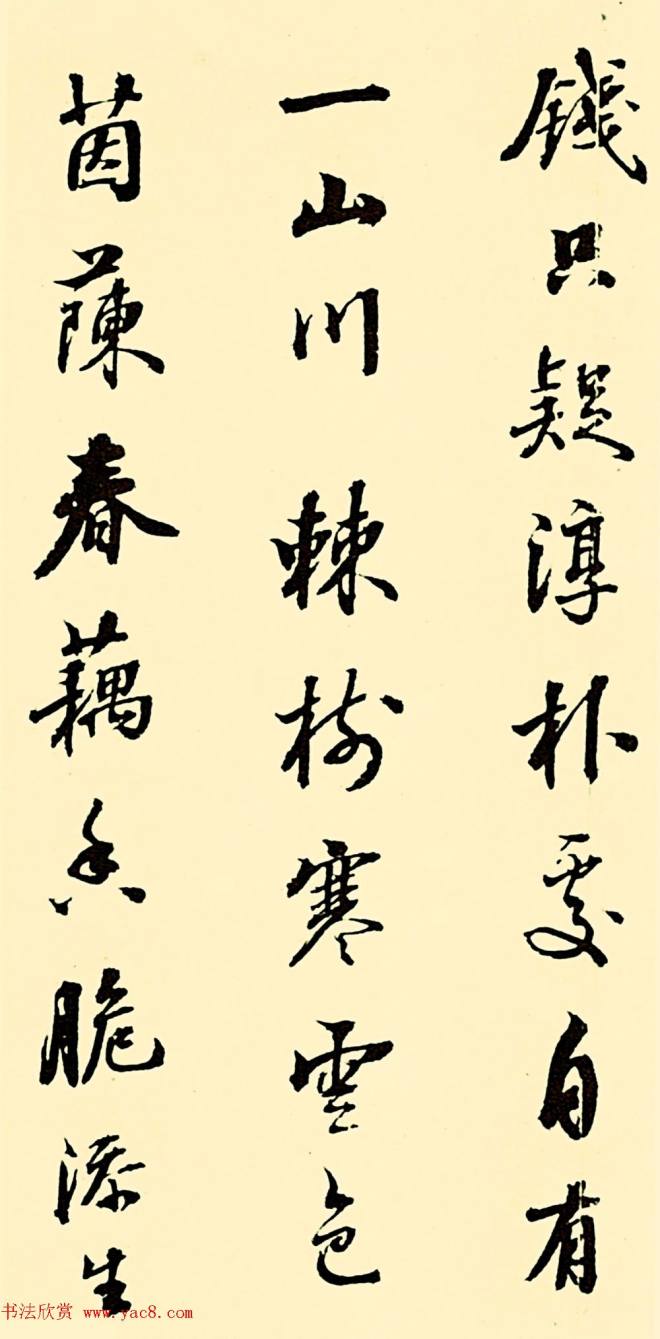 錢只疑淳朴處自有
一山川 棘樹寒雲色
茵蔯春藕香脆添生
书法欣赏 www.yac8.com